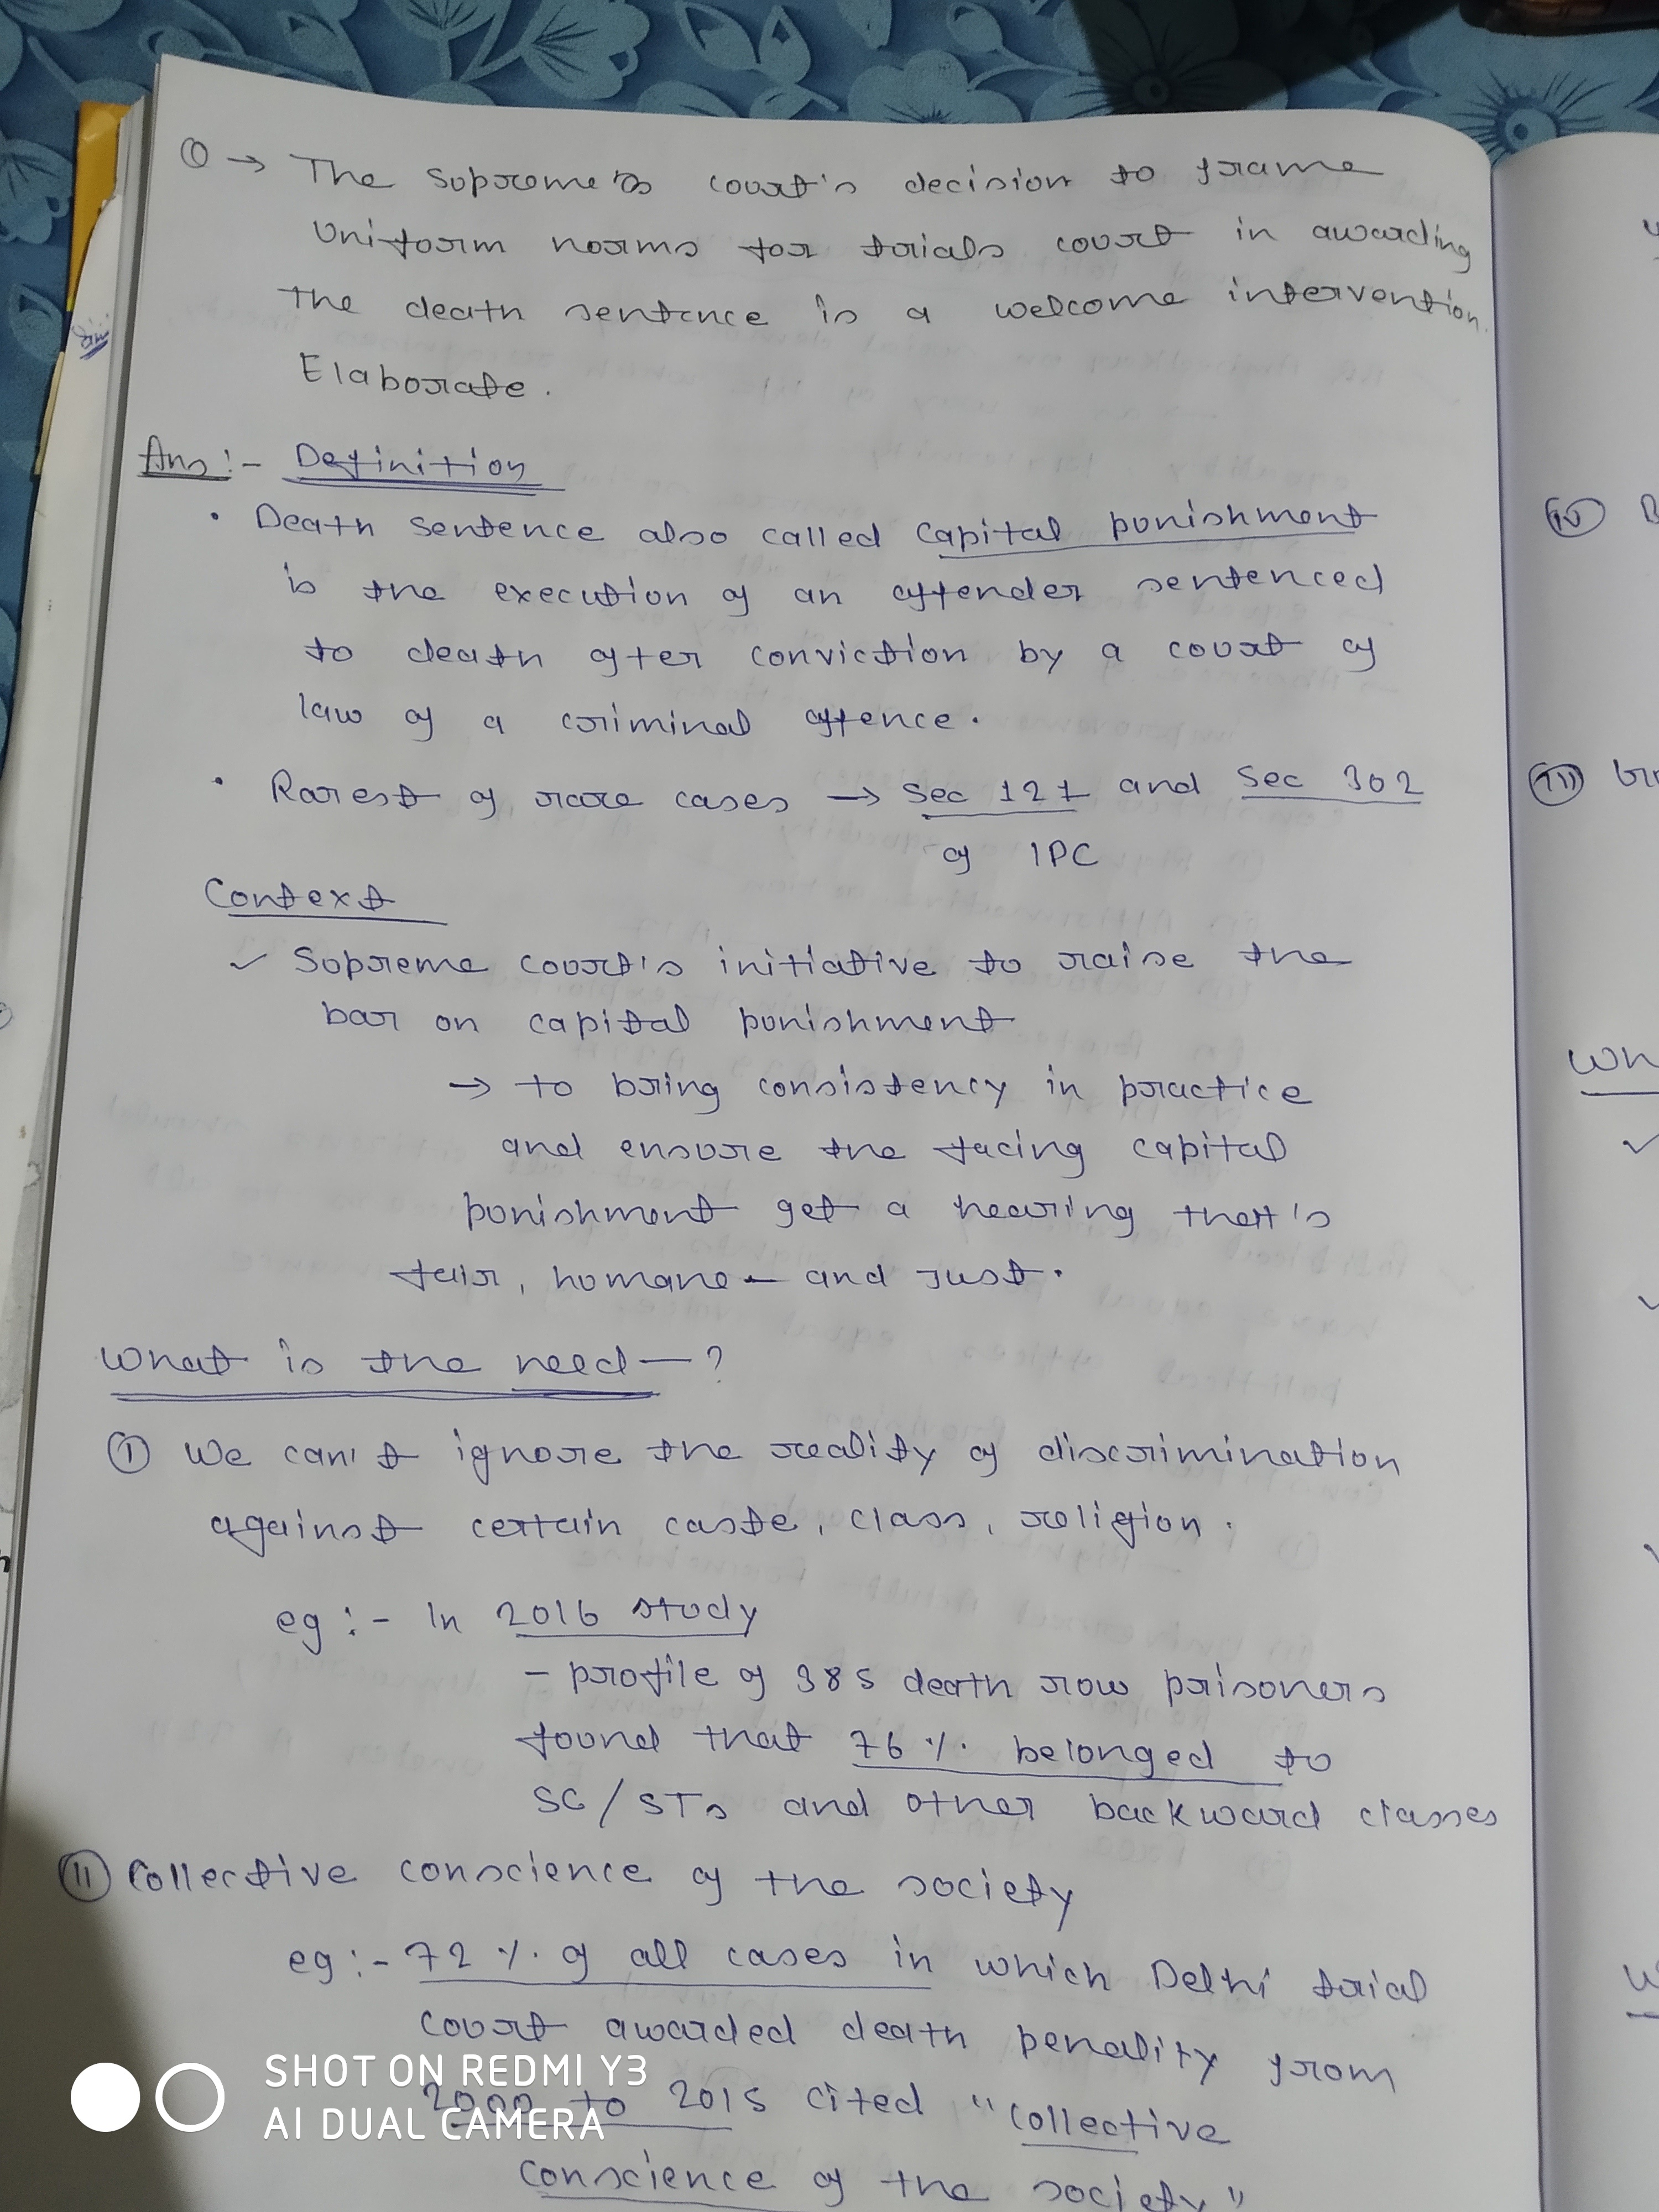 Q → The Supreme's court's decision to frame
Uniform norms for trials court in awarding
the death sentence is a welcome intervention.
Elaborate.
Ans :- Definition
• Death sentence also called capital punishment
is the execution of an offender sentenced
to death after conviction by a court of
law of a criminal offence.
• Rarest of rare cases → Sec 121 and Sec 302
of IPC
Context
✓ Supreme court's initiative to raise the
bar on capital punishment
→ to bring consistency in practice
and ensure the facing capital
punishment get a hearing that's
fair, humane and just.
What is the need — ?
(I) We can't ignore the reality of discrimination
against certain caste, class, religion.
eg :- In 2016 study
- profile of 385 death row prisoners
found that 76 % belonged to
SC/STs and other backward classes
(II) Collective conscience of the society
eg :- 72 % of all cases in which Delhi trial
court awarded death penality from
2000 to 2015 cited "collective
conscience of the society"
SHOT ON REDMI Y3
AI DUAL CAMERA